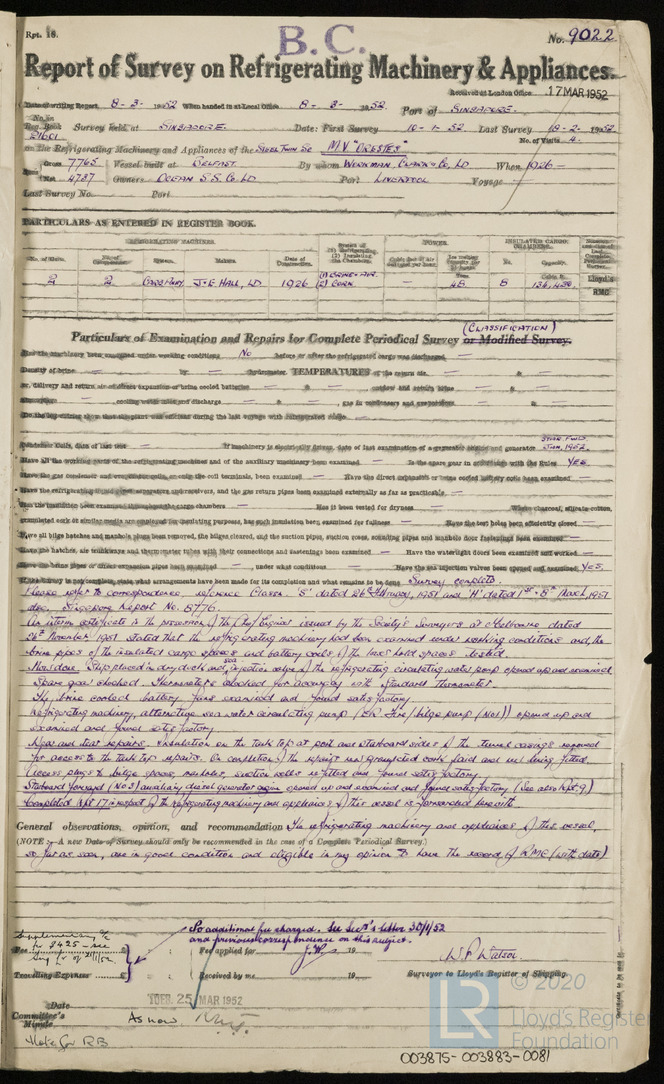 Rpt. 18.
B.C.
No. 9022
Report of Survey on Refrigerating Machinery & Appliances.
Received at London Office 17 MAR 1952
Date of writing Report 8-3-1952 When handed in at Local Office 8-3-1952 Port of SINGAPORE.
No. in Reg. Book Survey held at SINGAPORE. Date: First Survey 10-1-52 Last Survey 18-2-1952
No. of Visits 4.
on the Refrigerating Machinery and Appliances of the Steel Twin Sc M.V "ORESTES"
Gross 7765 Vessel built at BELFAST By whom WORKMAN, CLARK & Co, LD When 1926-
Net 4787 Owners OCEAN S.S. Co LD Port LIVERPOOL Voyage
Last Survey No. Port
PARTICULARS AS ENTERED IN REGISTER BOOK.
REFRIGERATING MACHINES. POWER. INSULATED CARGO CHAMBERS.
No. of Units. No. of Compressors. System. Makers. Date of Construction. No. Capacity.
2 2 J & E HALL, LD 1926 (1) BRINE & AIR (2) CORK — 48 8 Lloyd's RMC
Particulars of Examination and Repairs for Complete Periodical Survey or Modified Survey.
(CLASSIFICATION)
Has the machinery been examined under working conditions No before or after the refrigerated cargo was discharged —
Density of brine — by — hydrometer. TEMPERATURES of the return air — & —
or, delivery and return air of direct expansion or brine cooled batteries — & — outlet and return brine — & —
atmosphere — cooling water inlet and discharge — & — gas in condensers and evaporators — & —
Do the log entries show that the plant was efficient during the last voyage with refrigerated cargo —
Condenser Coils, date of last test — If machinery is electrically driven, date of last examination of a generator engine and generator STAR. FWD JAN. 1952.
Have all the working parts of the refrigerating machines and of the auxiliary machinery been examined — Is the spare gear in accordance with the Rules YES
Have the gas condenser and evaporator coils, or only the coil terminals, been examined — Have the direct expansion or brine cooled battery coils been examined —
Have the refrigerating liquid pipes separators and receivers, and the gas return pipes been examined externally as far as practicable —
Has the insulation been examined throughout the cargo chambers — Has it been tested for dryness — Where charcoal, silicate cotton,
granulated cork or similar media are employed for insulating purposes, has such insulation been examined for fullness — Have the test holes been efficiently closed —
Have all bilge hatches and manhole plugs been removed, the bilges cleared, and the suction pipes, suction roses, sounding pipes and manhole door fastenings been examined —
Have the hatches, air trunkways and thermometer tubes with their connections and fastenings been examined — Have the watertight doors been examined and worked —
Have the brine pipes or direct expansion pipes been examined —, under what conditions — Have the sea injection valves been opened and examined YES.
If the Survey is not complete, state what arrangements have been made for its completion and what remains to be done Survey complete.
Please refer to correspondence, reference Classn. 'S' dated 26th February, 1951 and 'H' dated 1st & 8th March, 1951
also, Singapore Report No. 8776.
An interim certificate in the possession of the Chief Engineer issued by the Society's Surveyors at Melbourne dated
26th November 1951 stated that the refrigerating machinery had been examined under working conditions and the
brine pipes of the insulated cargo spaces and battery coils of the lower hold spaces tested.
Now done. Ship placed in dry dock and sea injection valve of the refrigerating circulating water pump opened up and examined
Spare gear checked. Thermometers checked for accuracy with standard thermometer
The brine cooled battery fans examined and found satisfactory.
Refrigerating machinery, alternative sea water circulating pump (Ex. Fire/bilge pump (No1)) opened up and
examined and found satisfactory.
Wear and tear repairs. Insulation on the tank top at port and starboard sides of the tunnel casings removed
for access to the tank top repairs. On completion of the repairs new granulated cork fitted and
Access plugs to bilge spaces, manholes, suction wells refitted and found satisfactory.
Starboard forward (No 3) auxiliary diesel generator again opened up and examined and found satisfactory (See also Rpt. 9.)
Completed Rpt 17 in respect of the refrigerating machinery and appliances of this vessel is forwarded herewith.
General observations, opinion, and recommendation The refrigerating machinery and appliances of this vessel,
(NOTE :—A new Date of Survey should only be recommended in the case of a Complete Periodical Survey.)
so far as seen, are in good condition and eligible in my opinion to have the record of RMC (with date)
No additional fee charged. See Secy's letter 30/1/52
and previous correspondence on this subject.
Supplementary
for $425 - see
Fee £ Fee applied for 19
Travelling Expenses £ Received by me 19
W.P. Watson
Surveyor to Lloyd's Register of Shipping.
TUES. 25 MAR 1952
Date
Committee's Minute As now
Note for RB
© 2020
LR
Lloyd's Register
Foundation
003875-003883-0081